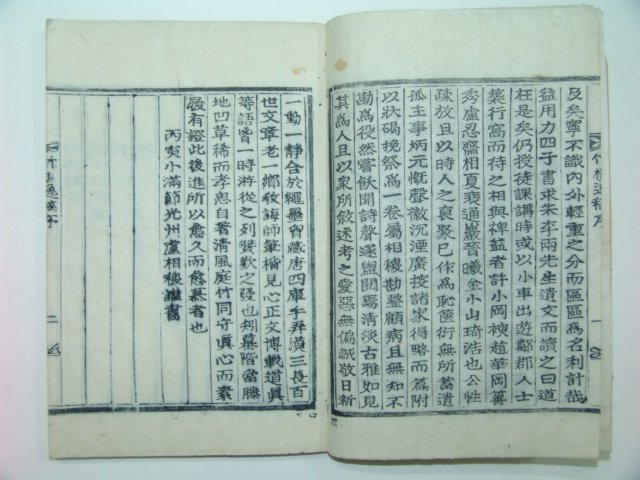 反矣寧不識內外輕重之分而區區爲名利計哉
益用力四子書求朱李兩先生遺文而讀之曰道
在是矣仍授徒課講時或以小車出遊鄰郡人士
築行窩而待之相與裨益者許小岡 趙華岡蓍
秀盧忍齋相夏裵通巖晉曦金小山琦浩也公性
疎放且以時人之裒聚已作爲恥篋衍無所蓄遺
孤主事炳元慨聲徽沉湮廣授諸家得略而爲附
以狀碣挽祭爲一卷屬相稷勘整顧病且無知不
勘爲役然嘗飫聞詩聲遂盥閱焉淸淡古雅如見
其爲人且以衆所敘述考之愛惡無偏誠敬日新
一動一靜合於繩墨胷藏唐四庫手弄漢三長百
世文章老一鄕敎誨師筆楷見心正文博載道眞
等語皆一時游從之列贊歎之發也矧墓階當滕
地凹草稀而孝思自著淸風庭竹同守眞心而素
履有證此後進所以愈久而愈慕者也
丙寅小滿節光州盧相稷謹書